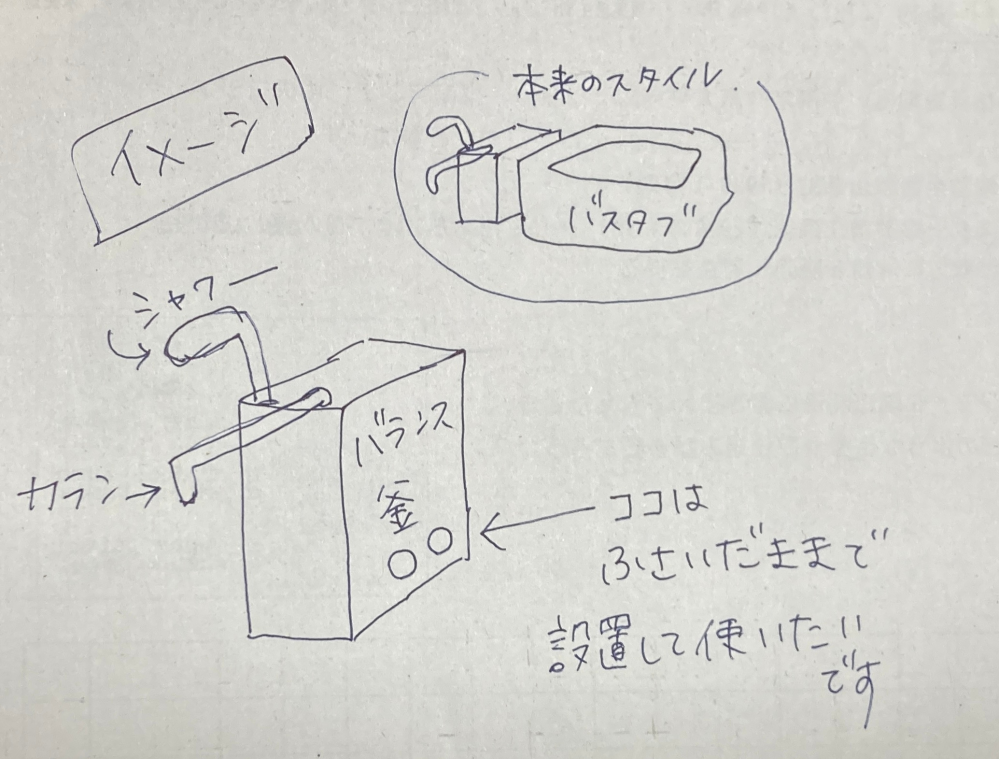 イメージ
本来のスタイル.
バスタブ
シャワー
カラン
バランス
釜
ココは
ふさいだままで
設置して使いたい
です